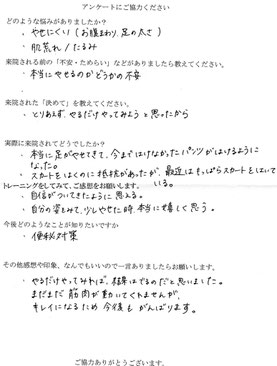 アンケートにご協力ください
どのような悩みがありましたか?
・やせにくい(お腹まわり、足の太さ)
・肌荒れ/たるみ
来院される前の「不安・ためらい」などがありましたら教えてください。
・本当にやせるのかどうかの不安
来院された「決めて」を教えてください。
・とりあえず、やるだけやってみようと思ったから
実際に来院されてどうでしたか?
・本当に足がやせてきて、今まではけなかったパンツがはけるように
なった。
・スカートをはくのに抵抗があったが、最近はもっぱらスカートをはいて
いる。
トレーニングをしてみて、ご感想をお願いします。
・自信がついてきたように思える。
・自分の姿をみて、少しやせた時、本当に嬉しく思う。
今後どのようなことが知りたいですか
・便秘対策
その他感想や印象、なんでもいいので一言ありましたらお願いします。
・やるだけやってみれば、結果はでるのだと思いました。
まだまだ筋肉が動いてくれませんが、
キレイになるため今後もがんばります。
ご協力ありがとうございます。